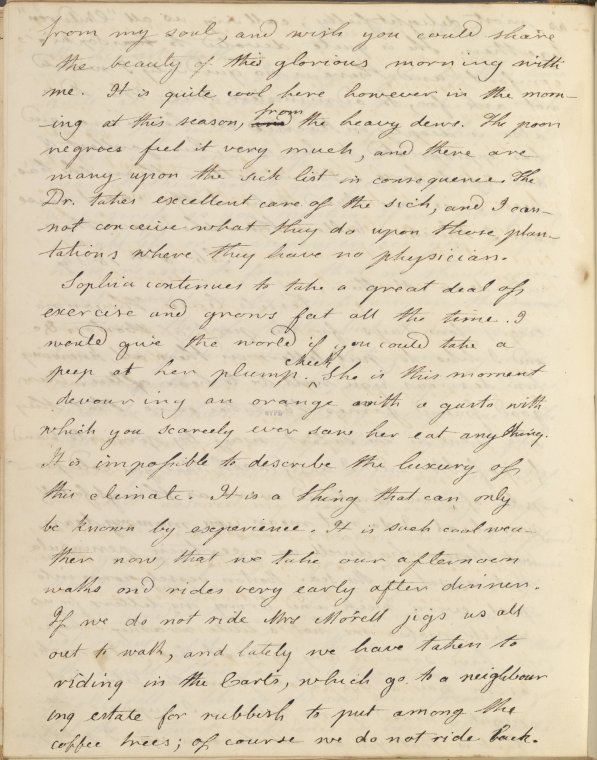 from my soul, and wish you could share
the beauty of this glorious morning with
me. It is quite cool here however in the morn-
-ing at this season, from the heavy dews. The poor
negroes feel it very much, and there are
many upon the sick list in consequence. The
Dr. takes excellent care of the sick, and I can-
not conceive what they do upon those plan-
tations where they have no physician.
Sophia continues to take a great deal of
exercise and grows fat all the time. I
would give the world if you could take a
peep at her plump cheek. She is this moment
devouring an orange with a gusto with
which you scarcely ever saw her eat anything.
It is impossible to describe the luxury of
this climate. It is a thing that can only
be known by experience. It is such cool wea-
ther now that we take our afternoon
walks and rides very early after dinner.
If we do not ride Mrs Morell jigs us all
out to walk, and lately we have taken to
riding in the Carts, which go to a neighbour
ing estate for rubbish to put among the
coffee trees; of course we do not ride back.